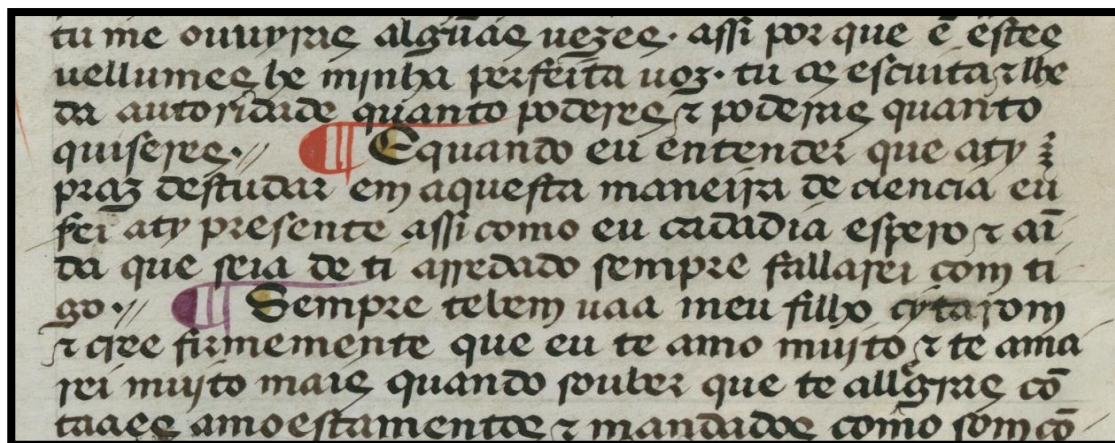 tu me ouuyras algũas uezes. assi por que ẽ estes
uellumes he mynha perfeita uoz. tu os escuita ⁊ lhe
da autoridade quanto poderes ⁊ poderas quanto
quiseres. // ¶ E quando eu entender que aty
praz destudar em aquesta maneira de ciencia eu
serei aty presente assi como eu cadadia espero ⁊ aĩ
da que seia de ti arredado sempre fallarei com ti
go. // ¶ Sempre te bem uaa meu filho
⁊ cree firmemente que eu te amo muito ⁊ te ama
rei muito mais quando souber que te allegras cõ
taaes amoestamentos ⁊ mandados como som cõ